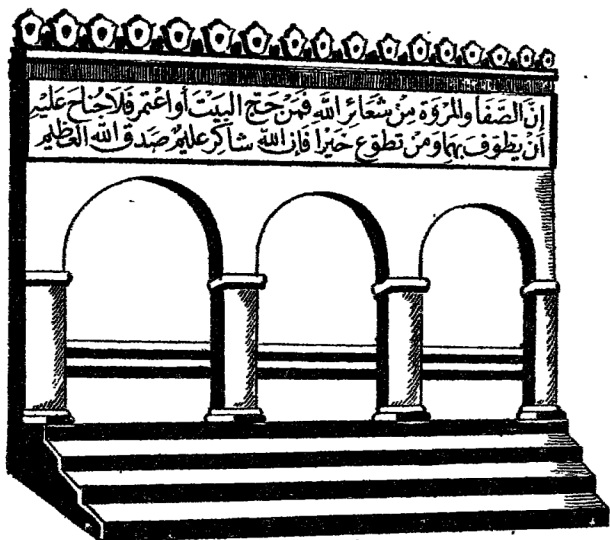 إن الصفا والمروة من شعائر الله فمن حج البيت أو اعتمر فلا جناح عليه
أن يطوف بهما ومن تطوع خيرا فإن الله شاكر عليم صدق الله العظيم